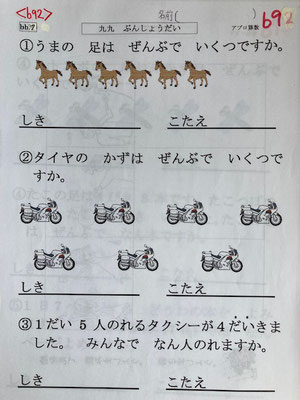 <b92>
bb7 九九 ぶんしょうだい 名前( ) アプロ算数 b92
①うまの 足は ぜんぶで いくつですか。
しき こたえ
②タイヤの かずは ぜんぶで いくつで
すか。
しき こたえ
③1だい 5 人のれるタクシーが4だいきま
した。 みんなで なん人のれますか。
しき こたえ